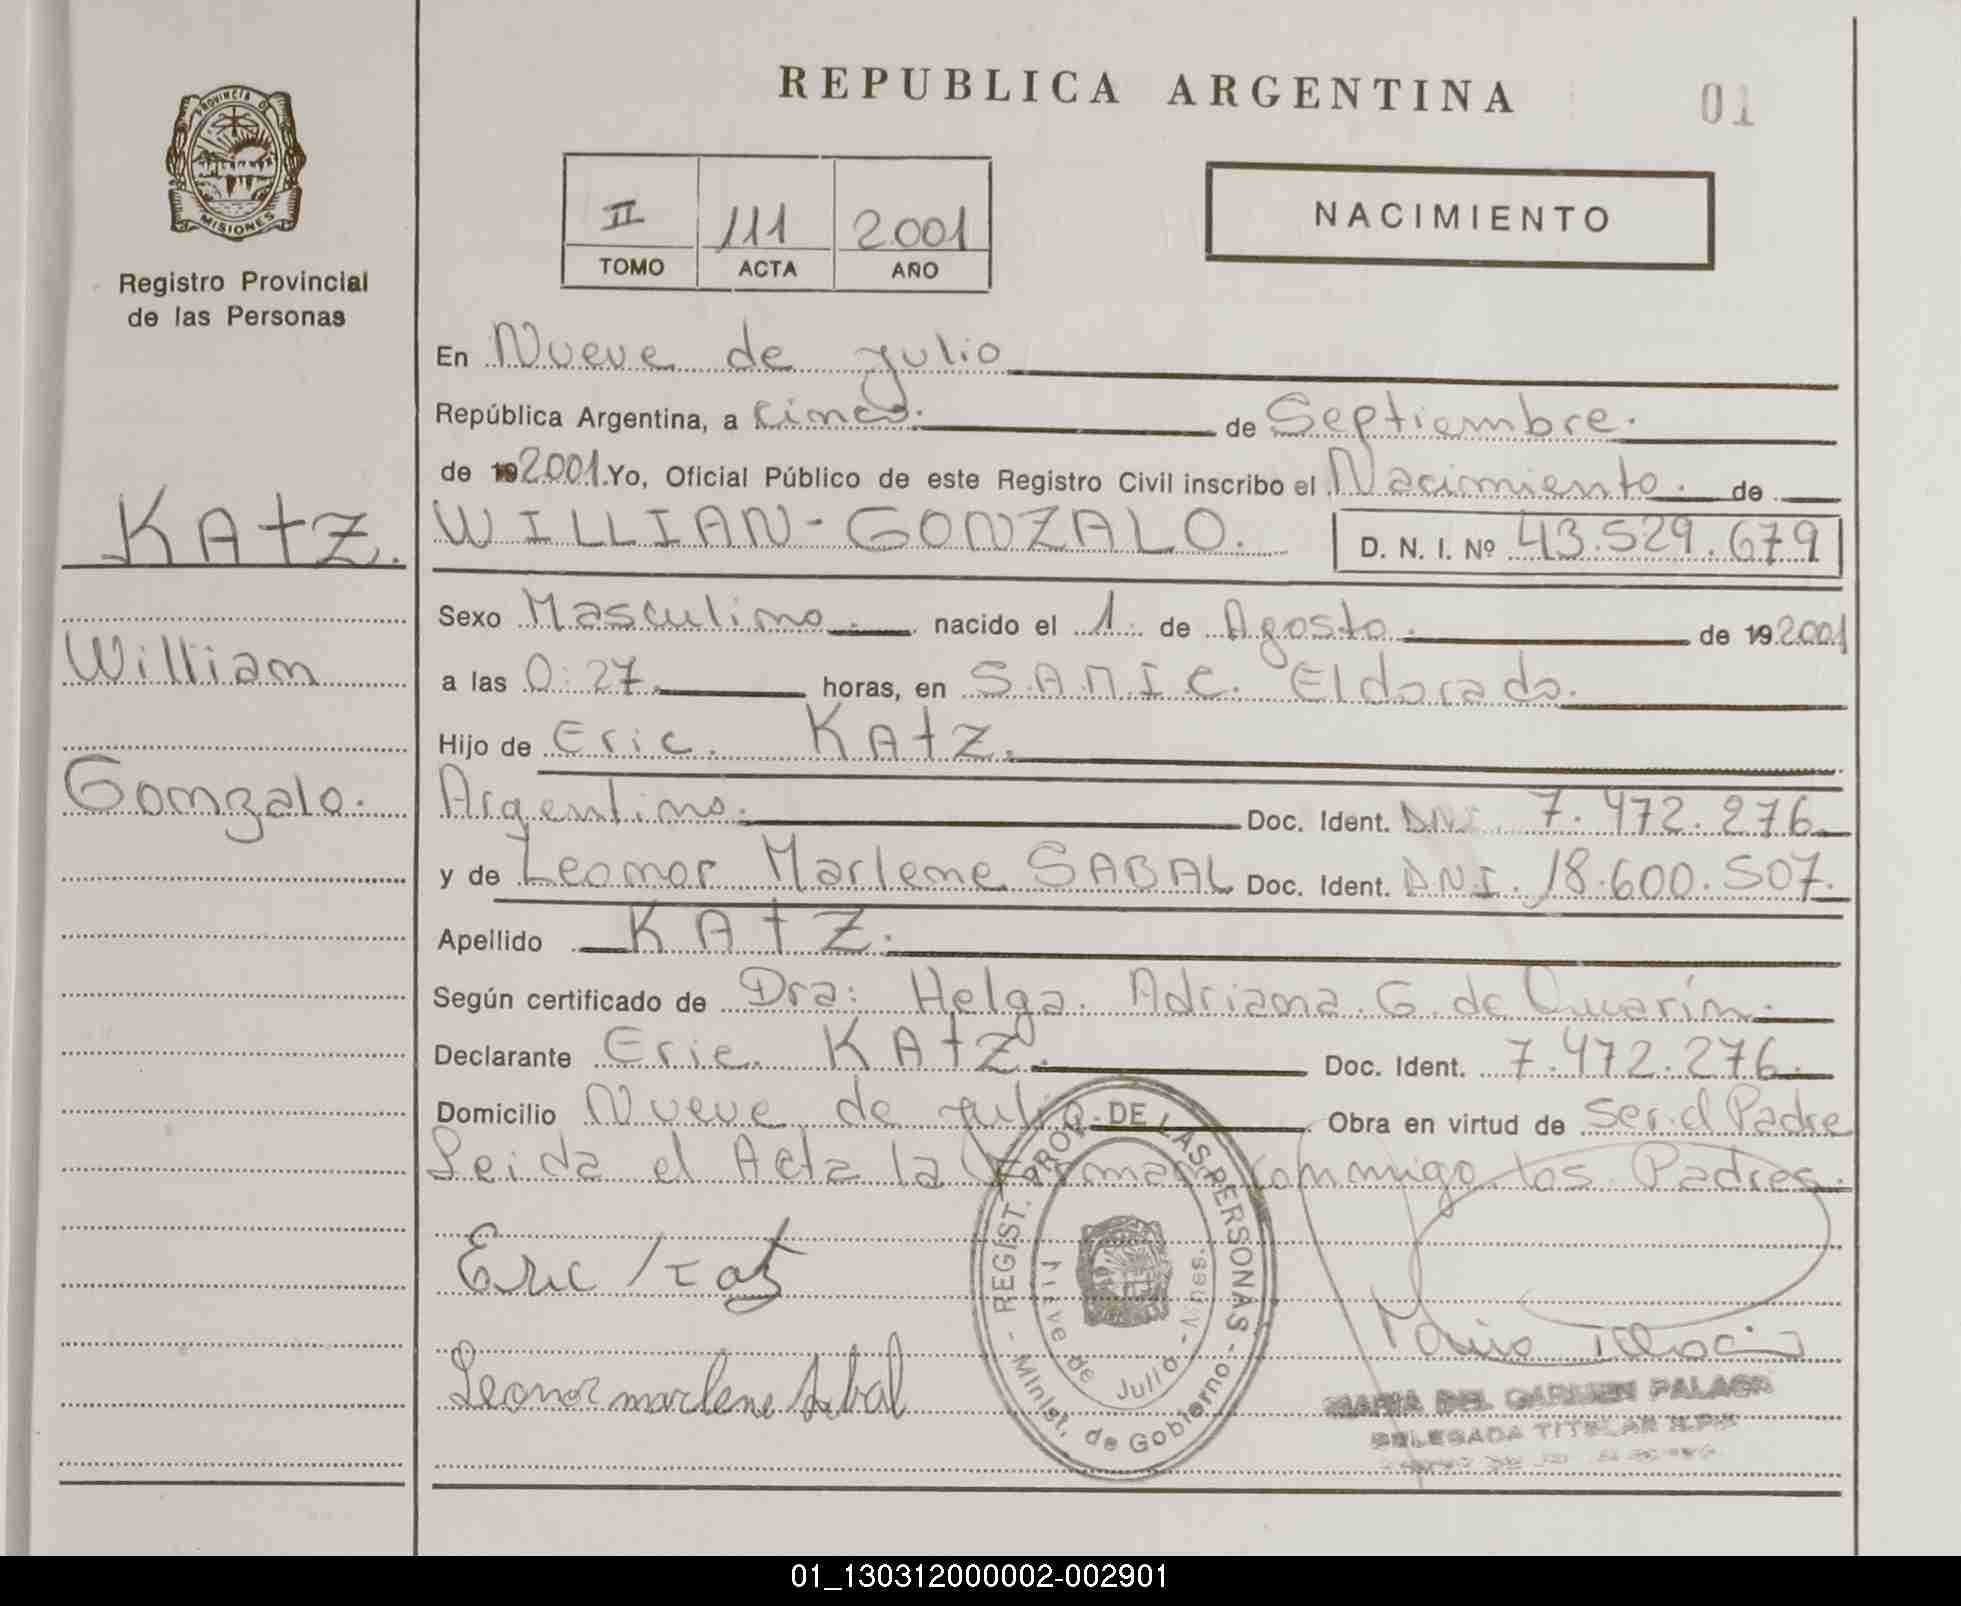 REPUBLICA ARGENTINA
01
PROVINCIA DE
MISIONES
Registro Provincial
de las Personas
II 111 2001
TOMO ACTA AÑO
NACIMIENTO
En Nueve de julio
República Argentina, a cinco. de Septiembre.
de 192001. Yo, Oficial Público de este Registro Civil inscribo el Nacimiento. de
KAtZ.
WILLIAN-GONZALO. D. N. I. Nº 43.529.679
Sexo Masculino. nacido el 1. de Agosto. de 192001
William
a las 0:27. horas, en S.A.M.I.C. Eldorado.
Hijo de Eric. KAtZ.
Gonzalo.
Argentino. Doc. Ident. DNI. 7.472.276
y de Leonor Marlene SABAL Doc. Ident. DNI. 18.600.507.
Apellido KAtZ.
Según certificado de Dra: Helga. Adriana. G. de Quarín.
Declarante Eric. KAtZ. Doc. Ident. 7.472.276.
Domicilio Nueve de julio Obra en virtud de ser el Padre
Leida el Acta la firman conmigo los Padres.
Eric Katz
Leonor marlene Sabal
- REGIST. PROV. DE LAS PERSONAS -
Minist. de Gobierno
Nueve de Julio - Mnes.
MARIA DEL CARMEN
DELEGADA TITULAR
01_130312000002-002901